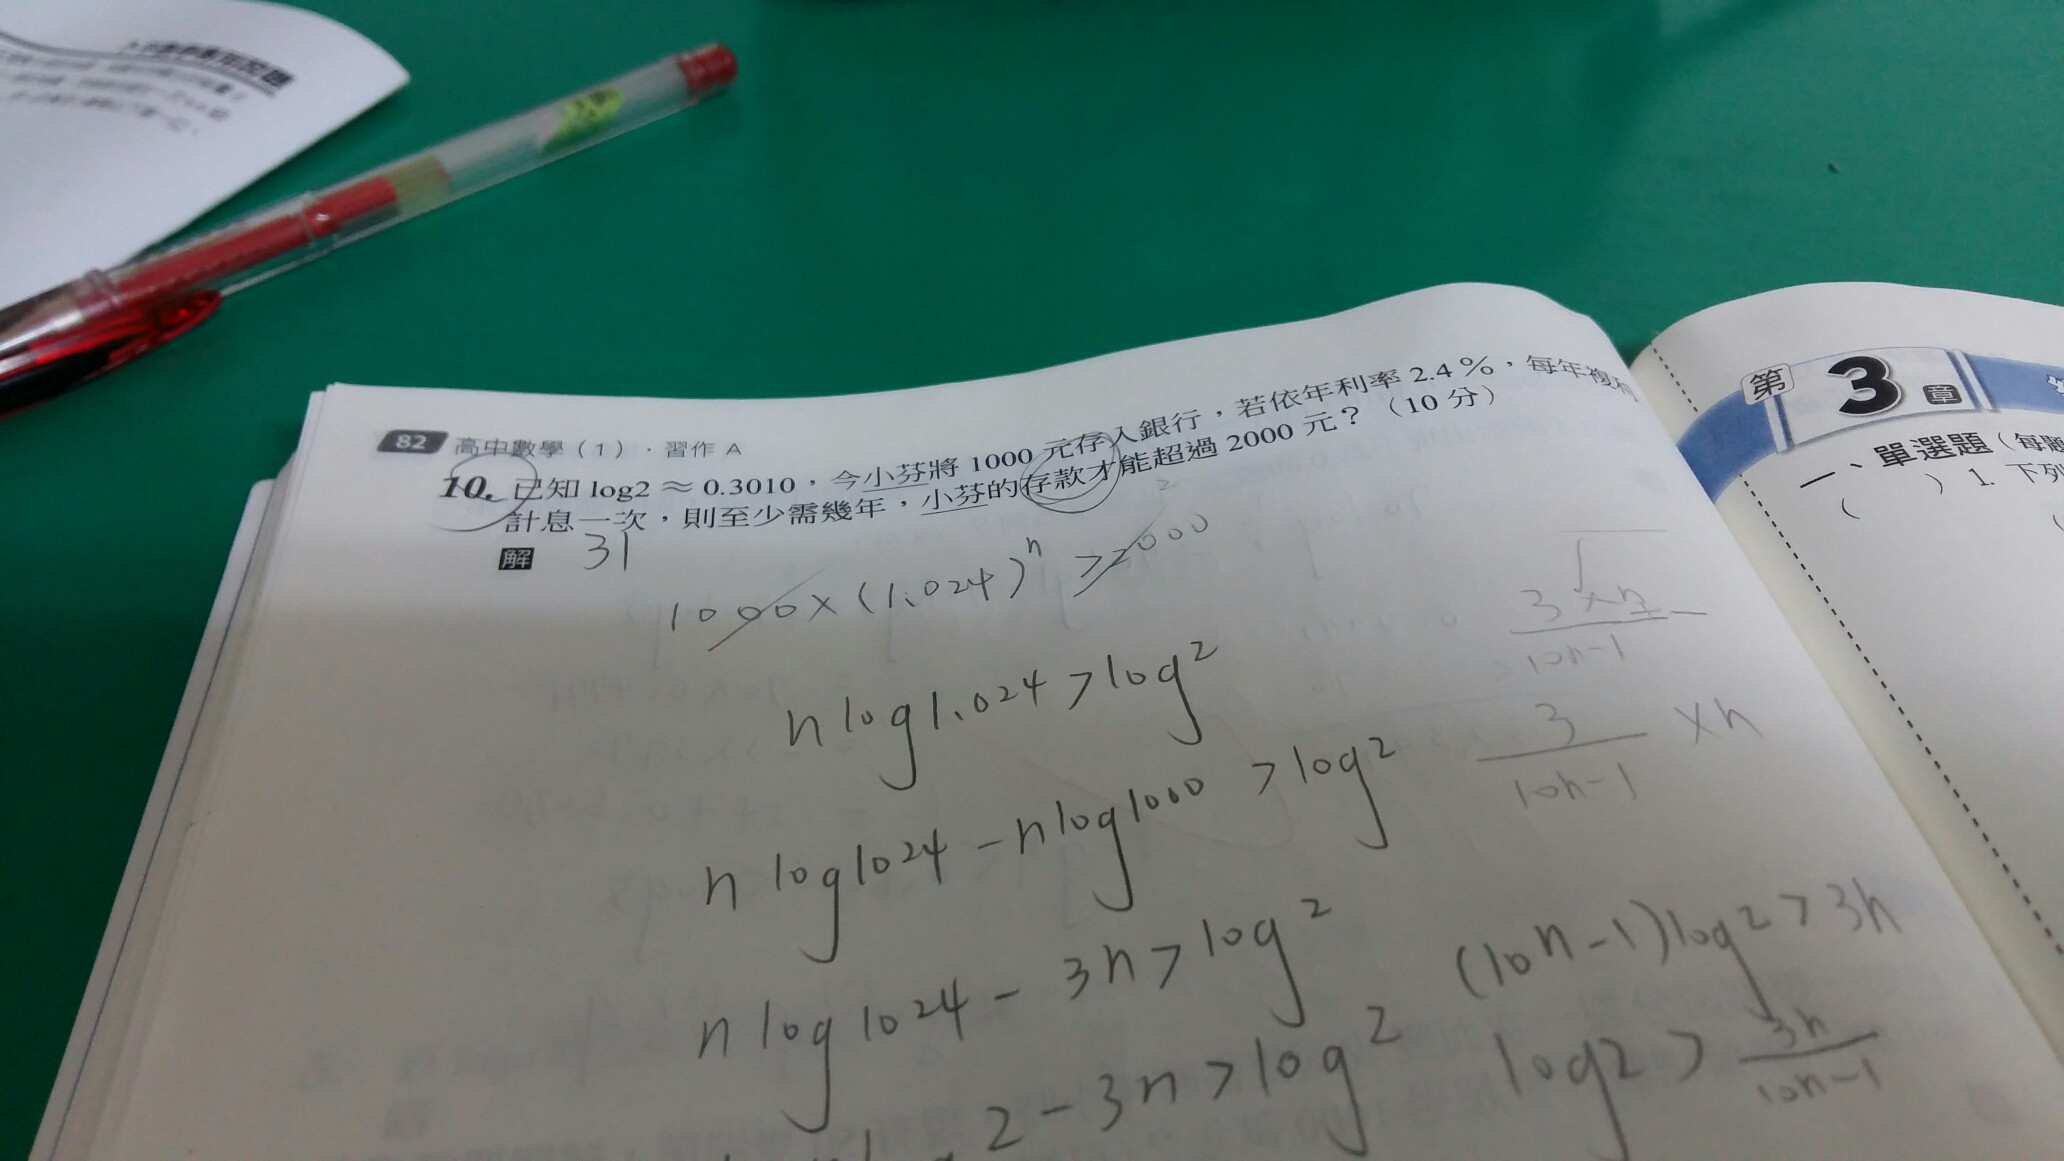 82 高中數學(1)．習作 A
10. 已知 log2 ≈ 0.3010，今小芬將 1000 元存入銀行，若依年利率 2.4%，每年複利
計息一次，則至少需幾年，小芬的存款才能超過 2000 元？（10 分）
解 31
1000×(1.024)^n > 2000 2
n log1.024 > log2
n log1024 - n log1000 > log2
n log1024 - 3n > log2
2 - 3n > log2
3×n
10n-1
3/(10n-1) ×n
(10n-1)log2 > 3n
log2 > 3n/(10n-1)
第 3 章
一、單選題（每題
(   ) 1. 下列